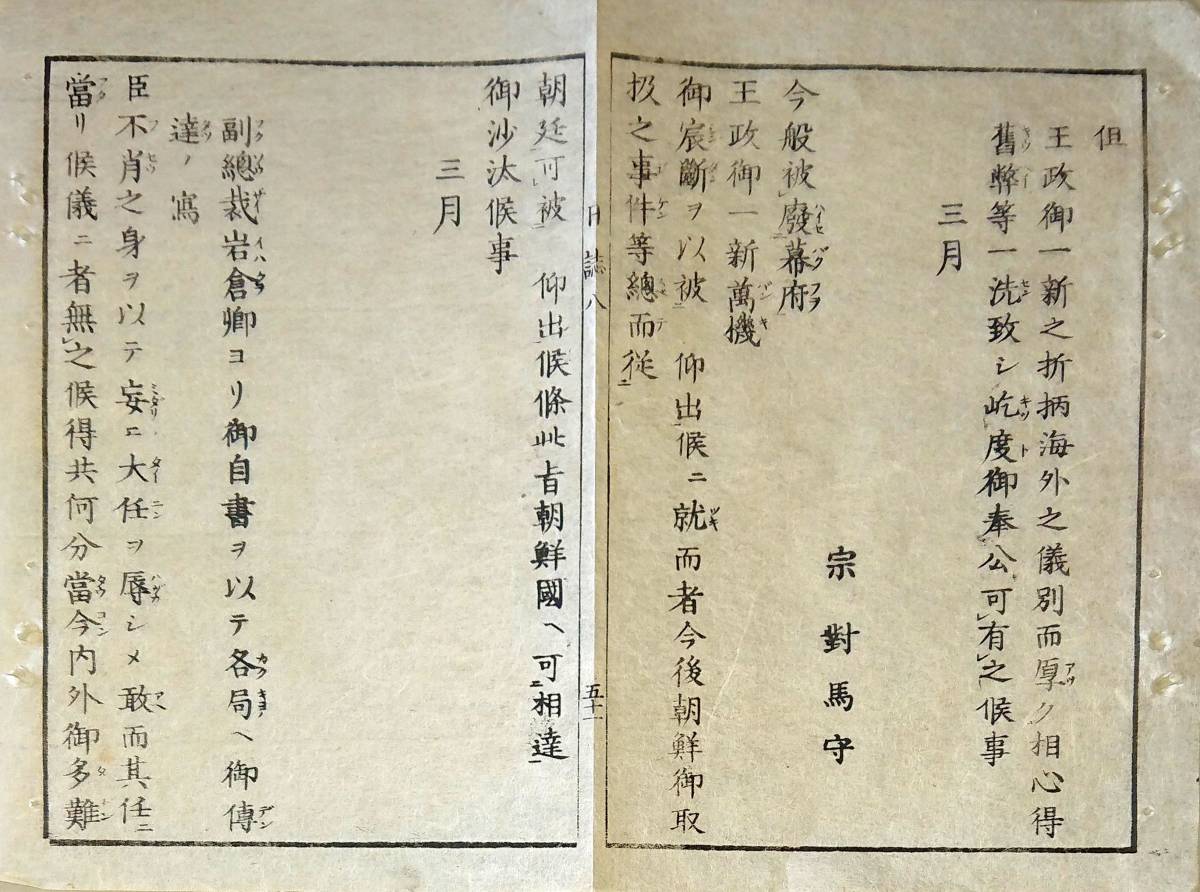 但
王政御一新之折柄海外之儀別而厚ク相心得
舊弊等一洗致シ屹度御奉公可有之候事
三月
宗對馬守
今般被廢幕府
王政御一新萬機
御宸斷ヲ以被 仰出候ニ就而者今後朝鮮御取
扱之事件等總而従
日誌八 五十一
朝廷可被 仰出候條此旨朝鮮國ヘ可相達
御沙汰候事
三月
副總裁岩倉卿ヨリ御自書ヲ以テ各局ヘ御傳
達ノ寫
臣不肖之身ヲ以テ妄ニ大任ヲ辱シメ敢而其任ニ
當リ候儀ニ者無之候得共何分當今内外御多難